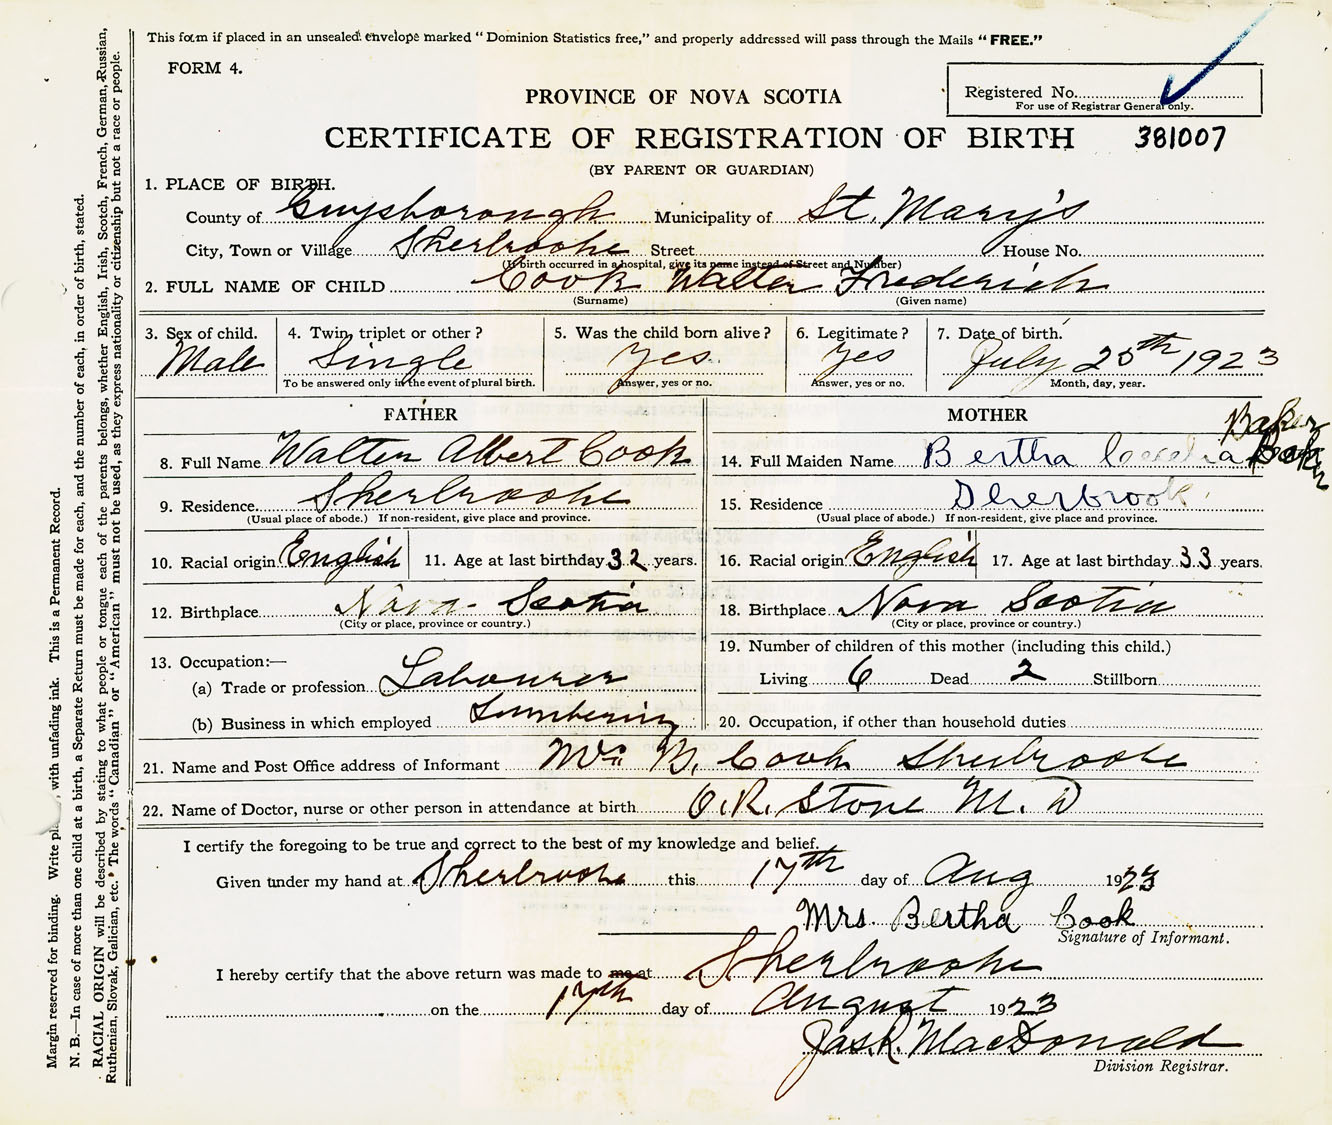 This form if placed in an unsealed envelope marked "Dominion Statistics free," and properly addressed will pass through the Mails "FREE."
FORM 4.
Registered No.
For use of Registrar General only.
PROVINCE OF NOVA SCOTIA
CERTIFICATE OF REGISTRATION OF BIRTH 381007
(BY PARENT OR GUARDIAN)
1. PLACE OF BIRTH.
County of Guysborough Municipality of St. Mary's
City, Town or Village Sherbrooke Street House No.
(If birth occurred in a hospital, give its name instead of Street and Number)
2. FULL NAME OF CHILD Cook Walter Frederick
(Surname) (Given name)
3. Sex of child. 4. Twin, triplet or other? 5. Was the child born alive? 6. Legitimate? 7. Date of birth.
Male Single Yes Yes July 25th 1923
To be answered only in the event of plural birth. Answer, yes or no. Answer, yes or no. Month, day, year.
FATHER
8. Full Name Walter Albert Cook
9. Residence Sherbrooke
(Usual place of abode.) If non-resident, give place and province.
10. Racial origin English 11. Age at last birthday 32 years.
12. Birthplace Nova Scotia
(City or place, province or country.)
13. Occupation:—
(a) Trade or profession Labourer
(b) Business in which employed Lumbering
MOTHER
Baker
14. Full Maiden Name Bertha Cecelia
Baker
15. Residence Sherbrook
(Usual place of abode.) If non-resident, give place and province.
16. Racial origin English 17. Age at last birthday 33 years.
18. Birthplace Nova Scotia
(City or place, province or country.)
19. Number of children of this mother (including this child.)
Living 6 Dead 2 Stillborn
20. Occupation, if other than household duties
21. Name and Post Office address of Informant Mrs B. Cook Sherbrooke
22. Name of Doctor, nurse or other person in attendance at birth C.R. Stone M.D
I certify the foregoing to be true and correct to the best of my knowledge and belief.
Given under my hand at Sherbrooke this 17th day of Aug 1923
Mrs. Bertha Cook
Signature of Informant.
I hereby certify that the above return was made to me at Sherbrooke
on the 17th day of August 1923
Jas. R. MacDonald
Division Registrar.
Margin reserved for binding. Write with unfading ink. This is a Permanent Record.
N. B.—In case of more than one child at a birth, a Separate Return must be made for each, and the number of each, in order of birth, stated.
RACIAL ORIGIN will be described by stating to what people or tongue each of the parents belongs, whether English, Irish, Scotch, French, German, Russian,
Ruthenian, Slovak, Galician, etc. The words "Canadian" or "American" must not be used, as they express nationality or citizenship but not a race or people.